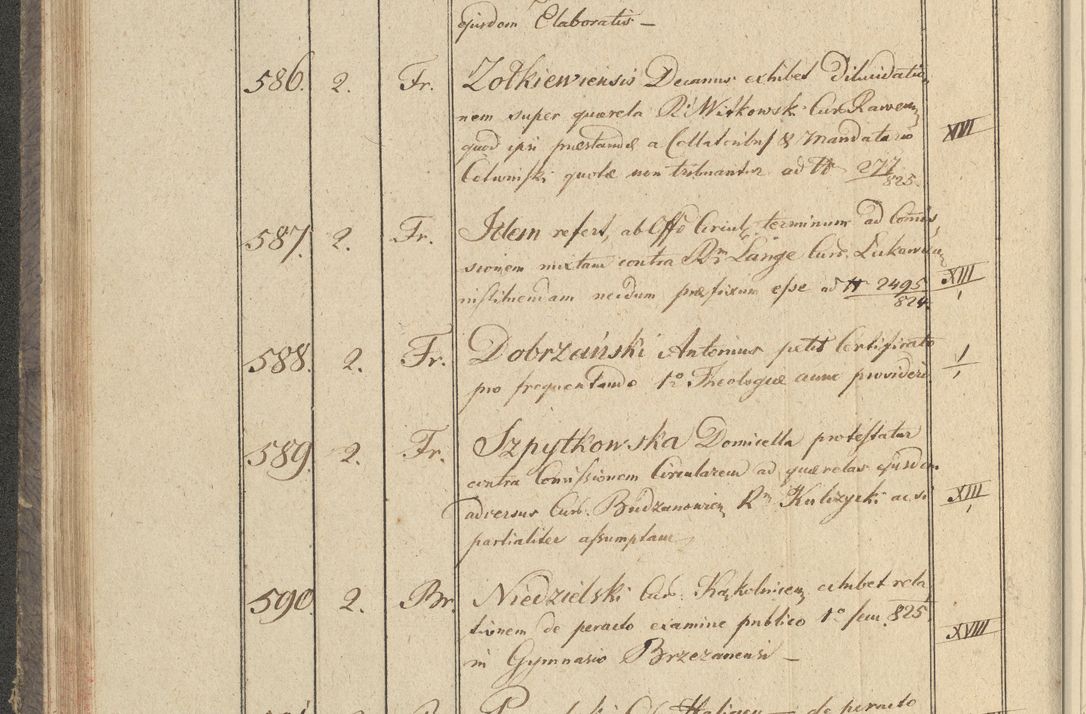 ejusdem Elaboratis —
586. 2. Fr. Zołkiewiensis Decanus exhibet dilucidatio-
nem super quærela R. Witkowski Cur. Rawen
quod ipsi præstandæ a Collatoribus & Mandatario
quotæ non tribuantur ad N 277/825. XVI
587. 2. Fr. Idem refert, ab Offo Circul. terminum ad Comis
sionem mixtam contra Rm Lange Cur.
instituendam necdum præfixum esse ad N 2495/824. XIII
588. 2. Fr. Dobrzański Antonius petit Certificato
pro frequentando 1o Theologiæ anno provideri
589. 2. Fr. Szpytkowska Domicella protestatur
contra Comissionem Circularem ad quærelas ejusdem
adversus Cur. Budzanowien Rm Kulczycki ac si
partialiter assumptam XIII
590. 2. Br. Niedzielski Cur. Kąkolnicen exhibet rela
tionem de peracto examine publico 1o sem. 825.
in Gymnasio Brzezanensi — XVIII
de peracto